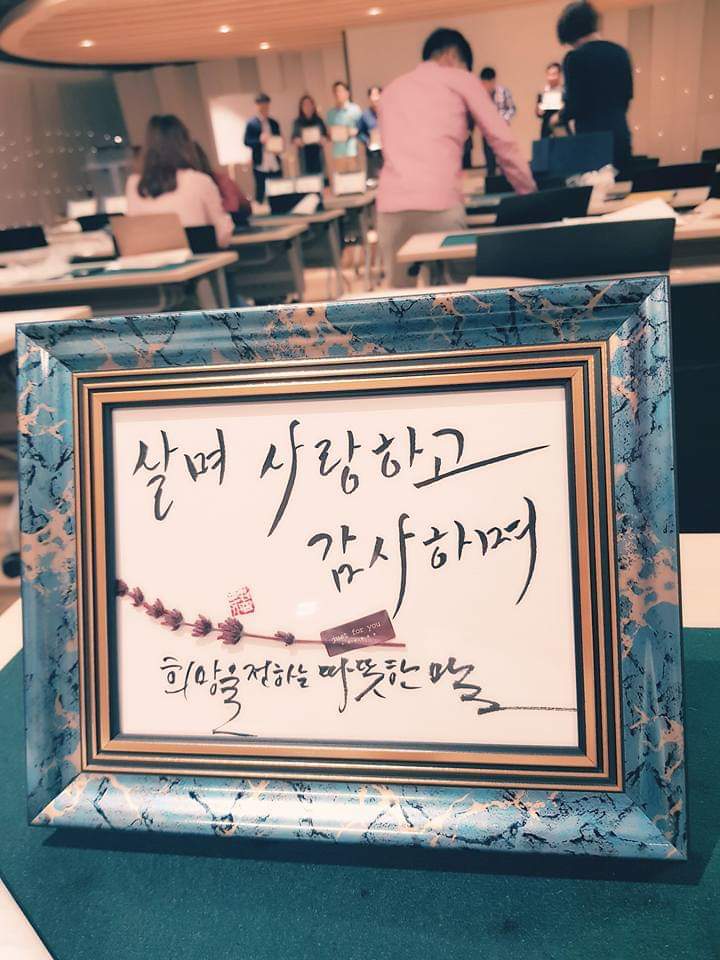 살며 사랑하고
감사하며
just for you
희망을 전하는 따뜻한 말